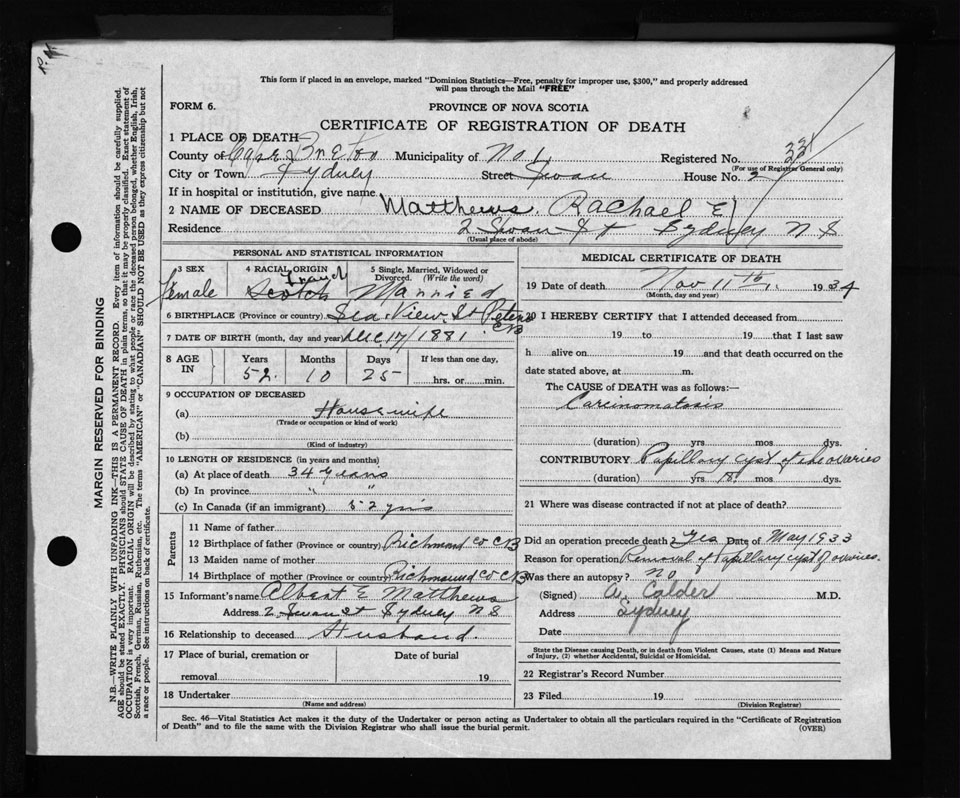 This form if placed in an envelope, marked "Dominion Statistics—Free, penalty for improper use, $300," and properly addressed
will pass through the Mail "FREE"
FORM 6.
PROVINCE OF NOVA SCOTIA
CERTIFICATE OF REGISTRATION OF DEATH
1 PLACE OF DEATH
County of Cape Breton Municipality of No 1 Registered No.
(For use of Registrar General only)
City or Town Sydney Street Swan House No. 2
If in hospital or institution, give name
2 NAME OF DECEASED Matthews. Rachael E
Residence 2 Swan St Sydney N S
(Usual place of abode)
PERSONAL AND STATISTICAL INFORMATION
3 SEX 4 RACIAL ORIGIN 5 Single, Married, Widowed or
Divorced. (Write the word)
Female French Scotch Married
6 BIRTHPLACE (Province or country) Sea View St Peters CB
7 DATE OF BIRTH (month, day and year) Dec 17/1881
8 AGE IN Years Months Days If less than one day,
52 10 25 hrs. or min.
9 OCCUPATION OF DECEASED
(a) Housewife
(Trade or occupation or kind of work)
(b)
(Kind of industry)
10 LENGTH OF RESIDENCE (in years and months)
(a) At place of death 34 years
(b) In province " "
(c) In Canada (if an immigrant) 52 yrs
Parents
11 Name of father
12 Birthplace of father (Province or country) Richmond Co CB
13 Maiden name of mother
14 Birthplace of mother (Province or country) Richmound Co CB
15 Informant's name Albert E Matthews
Address 2 Swan St Sydney N S
16 Relationship to deceased Husband.
17 Place of burial, cremation or Date of burial
removal 19
18 Undertaker
(Name and address)
MEDICAL CERTIFICATE OF DEATH
19 Date of death Nov 11th, 1934
(Month, day and year)
20 I HEREBY CERTIFY that I attended deceased from
19 to 19 that I last saw
h alive on 19 and that death occurred on the
date stated above, at m.
The CAUSE of DEATH was as follows:—
Carcinomatosis
(duration) yrs mos dys.
CONTRIBUTORY Papillary cyst of the ovaries
(duration) yrs mos. dys.
21 Where was disease contracted if not at place of death?
Did an operation precede death Yes Date of May 1933
Reason for operation Removal of Papillary cyst of ovaries.
Was there an autopsy? No
(Signed) A. Calder M.D.
Address Sydney
Date
State the Disease causing Death, or in death from Violent Causes, state (1) Means and Nature
of Injury, (2) whether Accidental, Suicidal or Homicidal.
22 Registrar's Record Number
23 Filed 19
(Division Registrar)
Sec. 46—Vital Statistics Act makes it the duty of the Undertaker or person acting as Undertaker to obtain all the particulars required in the "Certificate of Registration
of Death" and to file the same with the Division Registrar who shall issue the burial permit. (OVER)
MARGIN RESERVED FOR BINDING
N.B.—WRITE PLAINLY WITH UNFADING INK—THIS IS A PERMANENT RECORD. Every item of information should be carefully supplied.
AGE should be stated EXACTLY. PHYSICIANS should STATE CAUSE OF DEATH in plain terms, so that it may be properly classified. Exact statement of
OCCUPATION is very important. RACIAL ORIGIN will be described by stating to what people or race the deceased person belonged, whether English, Irish,
Scottish, French, German, Russian, Ruthenian, etc. The terms "AMERICAN" or "CANADIAN" SHOULD NOT BE USED as they express citizenship but not
a race or people. See instructions on back of certificate.